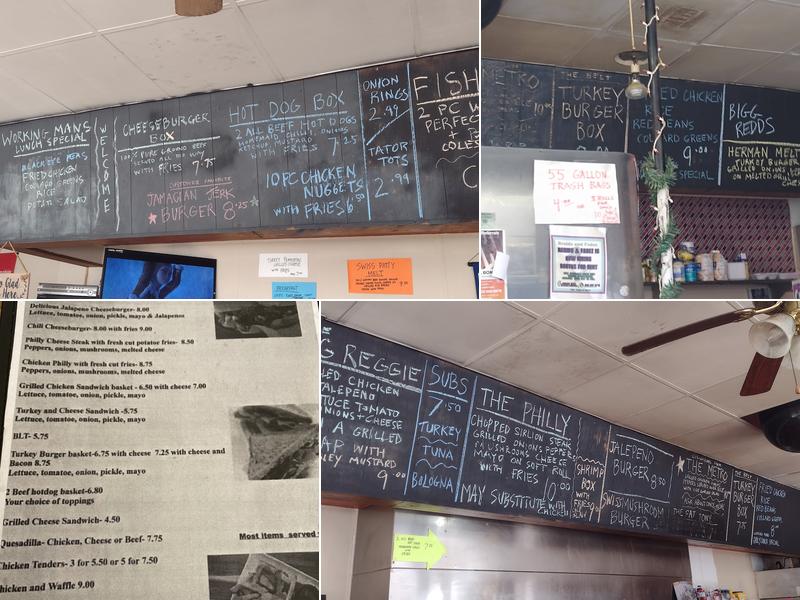 WORKING MANS
LUNCH SPECIAL
BLACK EYE PEAS
FRIED CHICKEN
COLLARD GREENS
RICE
POTATO SALAD
WELCOME
CHEESEBURGER
BOX
100% PURE GROUND BEEF
SERVED ALL THE WAY
WITH FRIES 7.75
CUSTOMER FAVORITE
JAMAICAN JERK
BURGER 8.25
HOT DOG BOX
2 ALL BEEF HOT DOGS
HOMEMADE CHILLI, ONIONS
KETCHUP, MUSTARD
WITH FRIES 7.25
10 PC CHICKEN
NUGGETS
WITH FRIES 6.50
ONION
RINGS
2.99
TATOR
TOTS
2.99
FISH
2 PC W
PERFEC
+
COLES
TURKEY
WITH FRIES
BREAKFAST
SWISS PATTY
MELT
METRO
THE BELT
TURKEY
BURGER
BOX
8.00
FRIED CHICKEN
RICE
RED BEANS
COLLARD GREENS
9.00
SPECIAL
BIGG
REDDS
HERMAN MELT
TURKEY BURGER
GRILLED ONIONS
ON MELTED
55 GALLON
TRASH BAGS
Braids and Fades
BRAIDS & FADEZ IS
NOW HIRING
BOOTHS FOR RENT
Delicious Jalapeno Cheeseburger- 8.00
Lettuce, tomatoes, onion, pickle, mayo & Jalapenos
Chili Cheeseburger- 8.00 with fries 9.00
Philly Cheese Steak with fresh cut potatoe fries- 8.50
Peppers, onions, mushrooms, melted cheese
Chicken Philly with fresh cut fries- 8.75
Peppers, onions, mushrooms, melted cheese
Grilled Chicken Sandwich basket - 6.50 with cheese 7.00
Lettuce, tomatoe, onion, pickle, mayo
Turkey and Cheese Sandwich -5.75
Lettuce, tomatoe, onion, pickle, mayo
BLT- 5.75
Turkey Burger basket-6.75 with cheese 7.25 with cheese and
Bacon 8.75
Lettuce, tomatoe, onion, pickle, mayo
2 Beef hotdog basket-6.80
Your choice of toppings
Grilled Cheese Sandwich- 4.50
Quesadilla- Chicken, Cheese or Beef- 7.75
Most items served
Chicken Tenders- 3 for 5.50 or 5 for 7.50
hicken and Waffle 9.00
G REGGIE
LED CHICKEN
ALEPENO
TUCE TOMATO
NIONS + CHEESE
A GRILLED
AP WITH
LEY MUSTARD
9.00
SUBS
7.50
TURKEY
TUNA
BOLOGNA
THE PHILLY
CHOPPED SIRLION STEAK
GRILLED ONIONS PEPPER
MUSHROOMS CHEESE
MAYO ON SOFT ROLL
WITH FRIES
10.00
MAY SUBSTITUTE WITH
CHICKEN
SHRIMP
BOX
WITH
FRIES
JALEPENO
BURGER 8.50
SWISS MUSHROOM
BURGER
THE METRO
THE FAT TONY
THE BELT
TURKEY
BURGER
BOX
FRIED CHICKEN
RICE
RED BEANS
COLLARD GREENS
SPECIAL